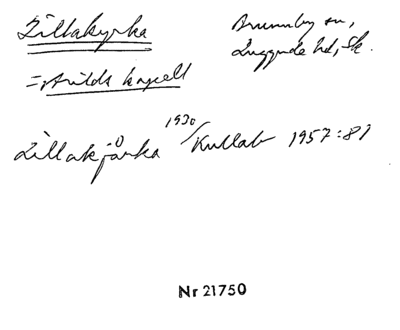 Lillakyrka
Brunnby sn,
Luggude hd, Sk.
= Arilds kapell
Lillakjårka 1930/Kullab 1957:81
Nr 21750